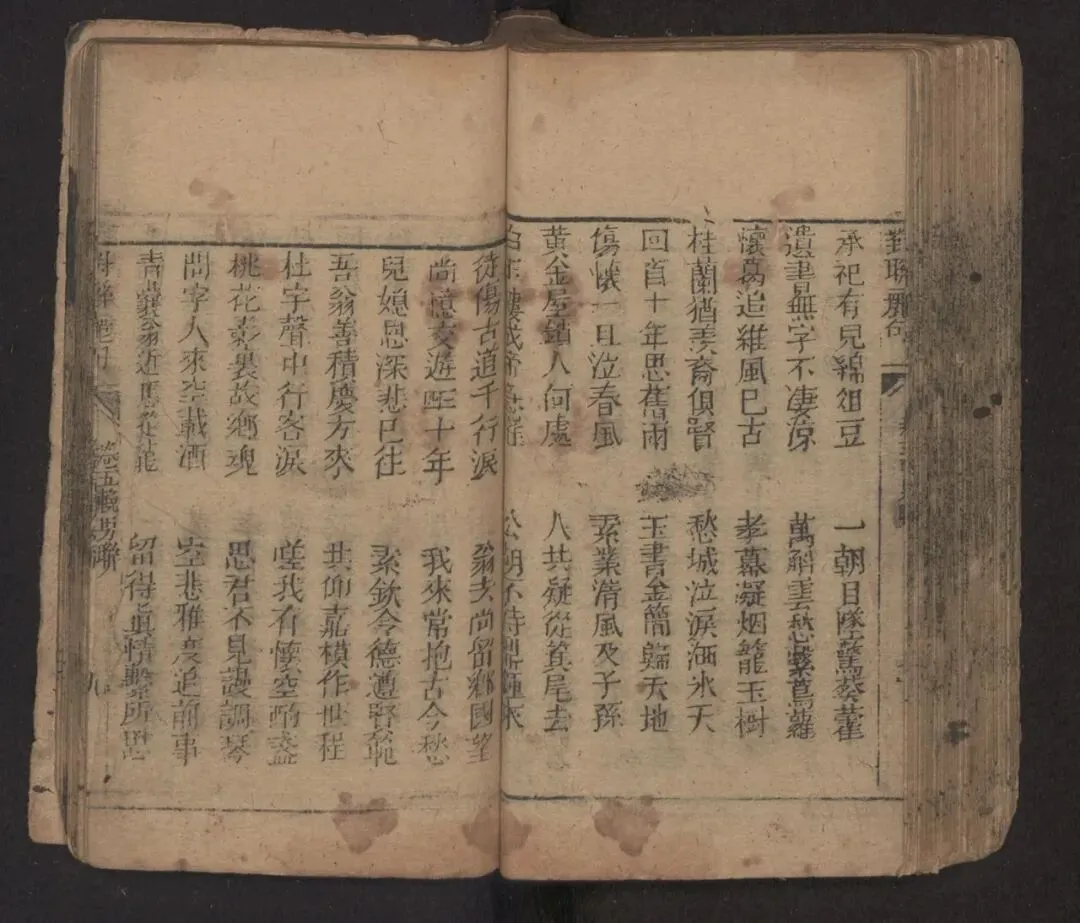 對聯麗句
承祀有兒綿俎豆 一朝目墜驚葵藿
遺書無字不凄涼 萬斛雲愁縈蔦蘿
懷舊追維風已古 孝幕凝烟籠玉樹
桂蘭猶羨裔俱賢 愁城泣淚洒氷天
回首十年思舊雨 玉書金簡歸天地
傷懷一旦泣春風 素業清風及子孫
黃金屋鎖人何處 人共疑從箕尾去
白玉樓成帝 公胡不待鼎鐘來
徒傷古道千行淚 翁去尚留鄉國望
尚憶交遊四十年 我來常抱古今愁
兒媳恩深悲已往 素欽令德遵賢範
吾翁善積慶方來 共仰嘉模作世程
杜宇聲中行客淚 嗟我有懷空酌盞
桃花影裏故鄉魂 思君不見謾調琴
問字人來空載酒 空悲雅度追前事
青囊翁近 留得眞情繫所思
卷五 聯 九